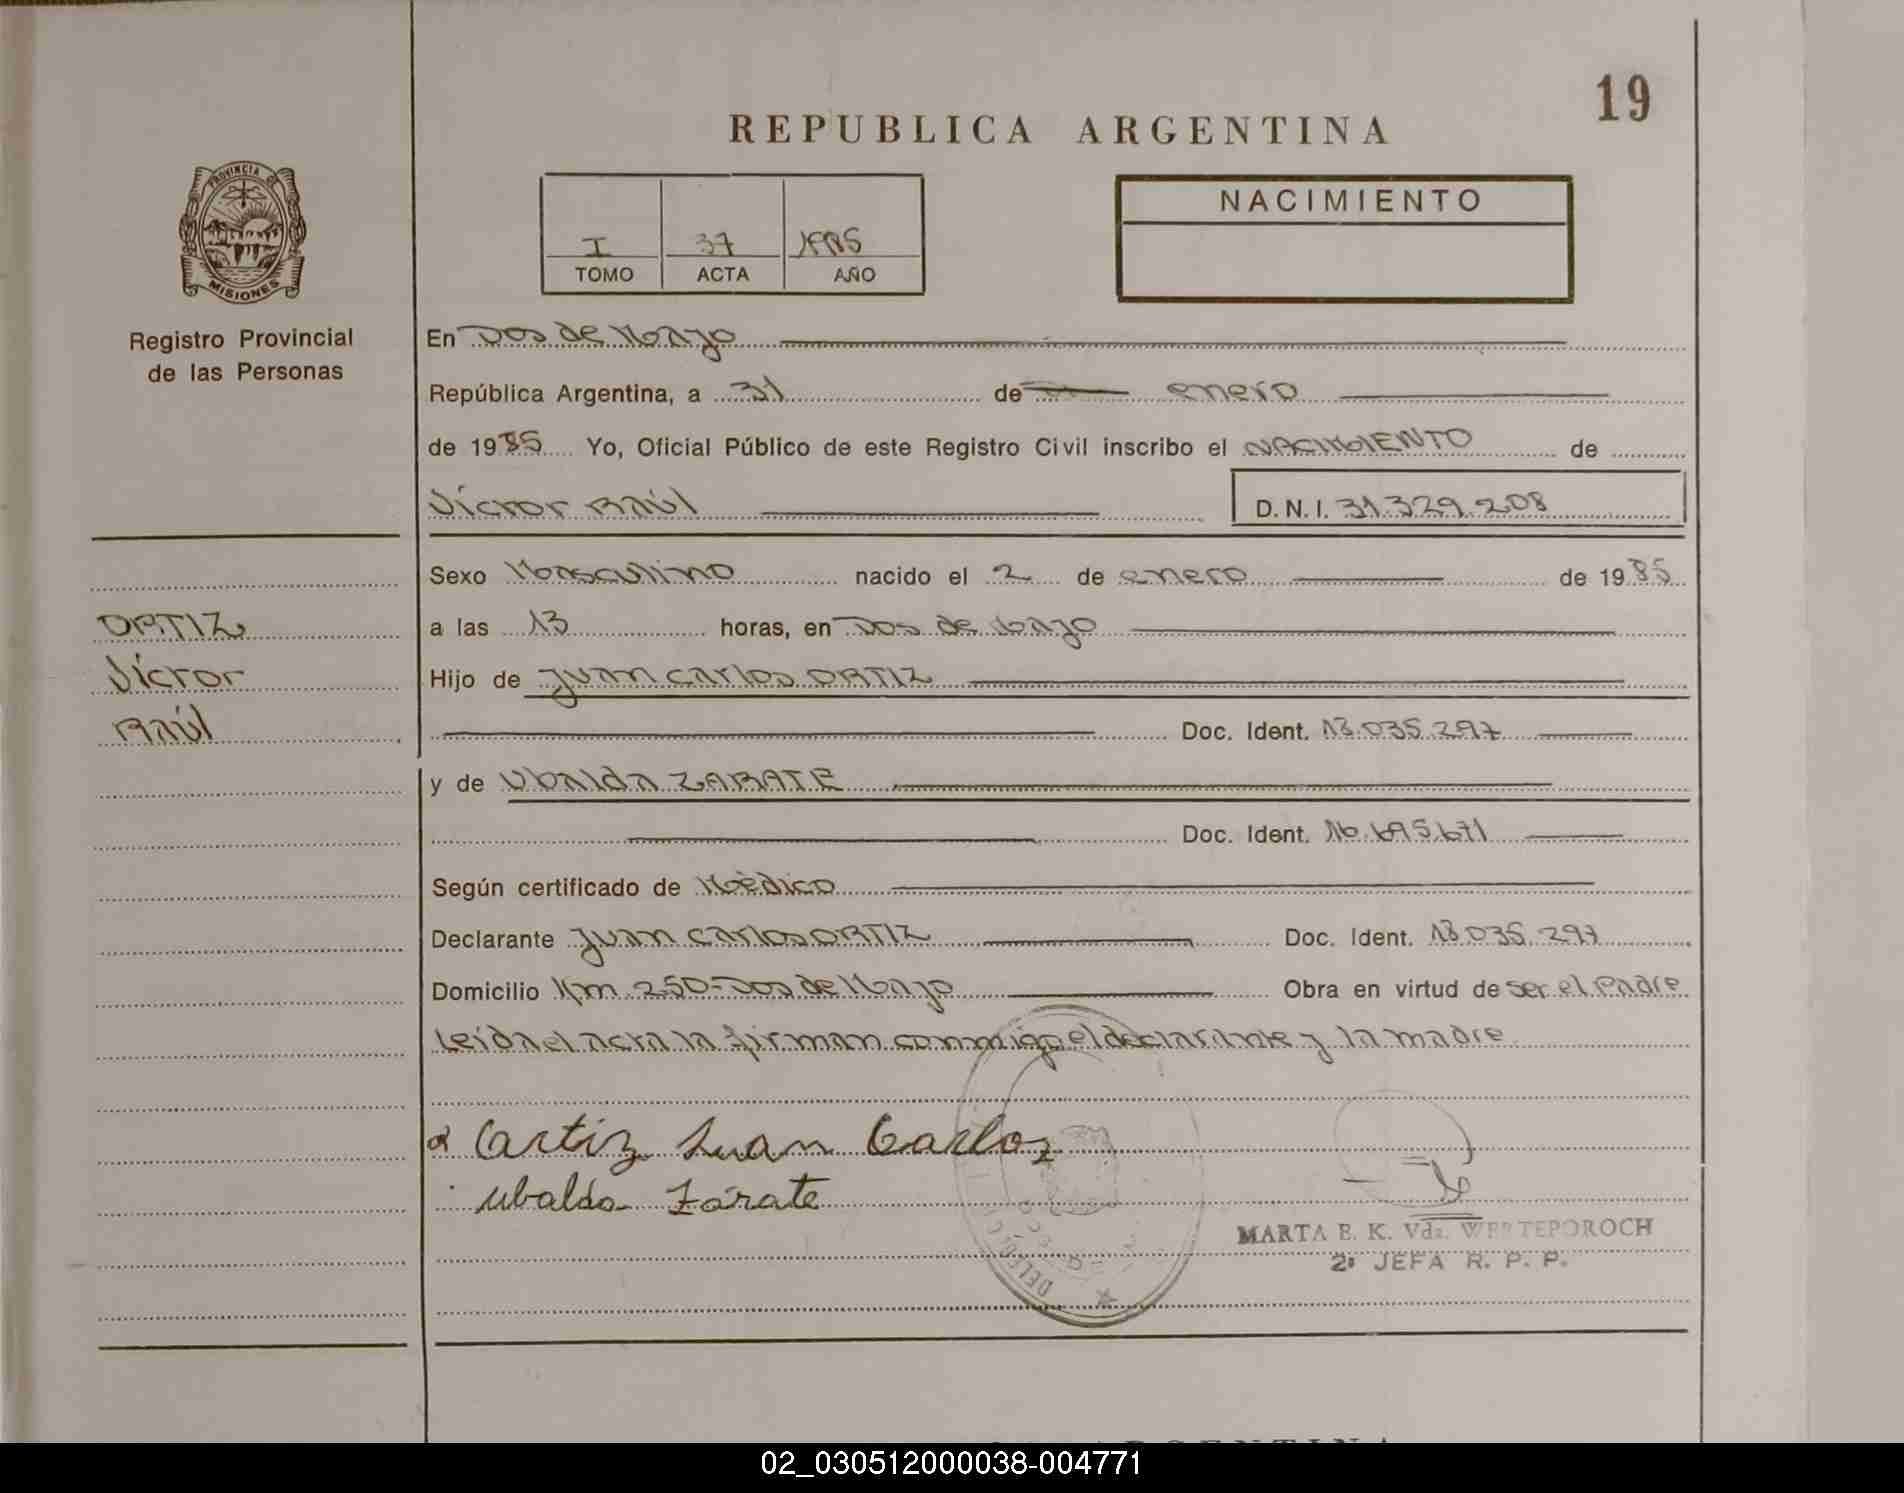 19
REPUBLICA ARGENTINA
PROVINCIA DE
MISIONES
Registro Provincial
de las Personas
I 37 1985
TOMO ACTA AÑO
NACIMIENTO
En Dos de Mayo
República Argentina, a 31 de enero
de 1985 Yo, Oficial Público de este Registro Civil inscribo el NACIMIENTO de
Víctor Raúl D.N.I. 31.329.208
Sexo Masculino nacido el 2 de enero de 1985
ORTIZ
Víctor
Raúl
a las 13 horas, en Dos de Mayo
Hijo de Juan Carlos ORTIZ
Doc. Ident. 13.035.297
y de Ubalda ZARATE
Doc. Ident. 16.695.671
Según certificado de Médico
Declarante Juan Carlos ORTIZ Doc. Ident. 13.035.297
Domicilio Km 250-Dos de Mayo Obra en virtud de ser el Padre
Leída el acta la firman conmigo el declarante y la madre
Ortiz Juan Carloz
Ubalda Zárate
MARTA E. K. Vda. WERTEPOROCH
2a JEFA R. P. P.
02_030512000038-004771